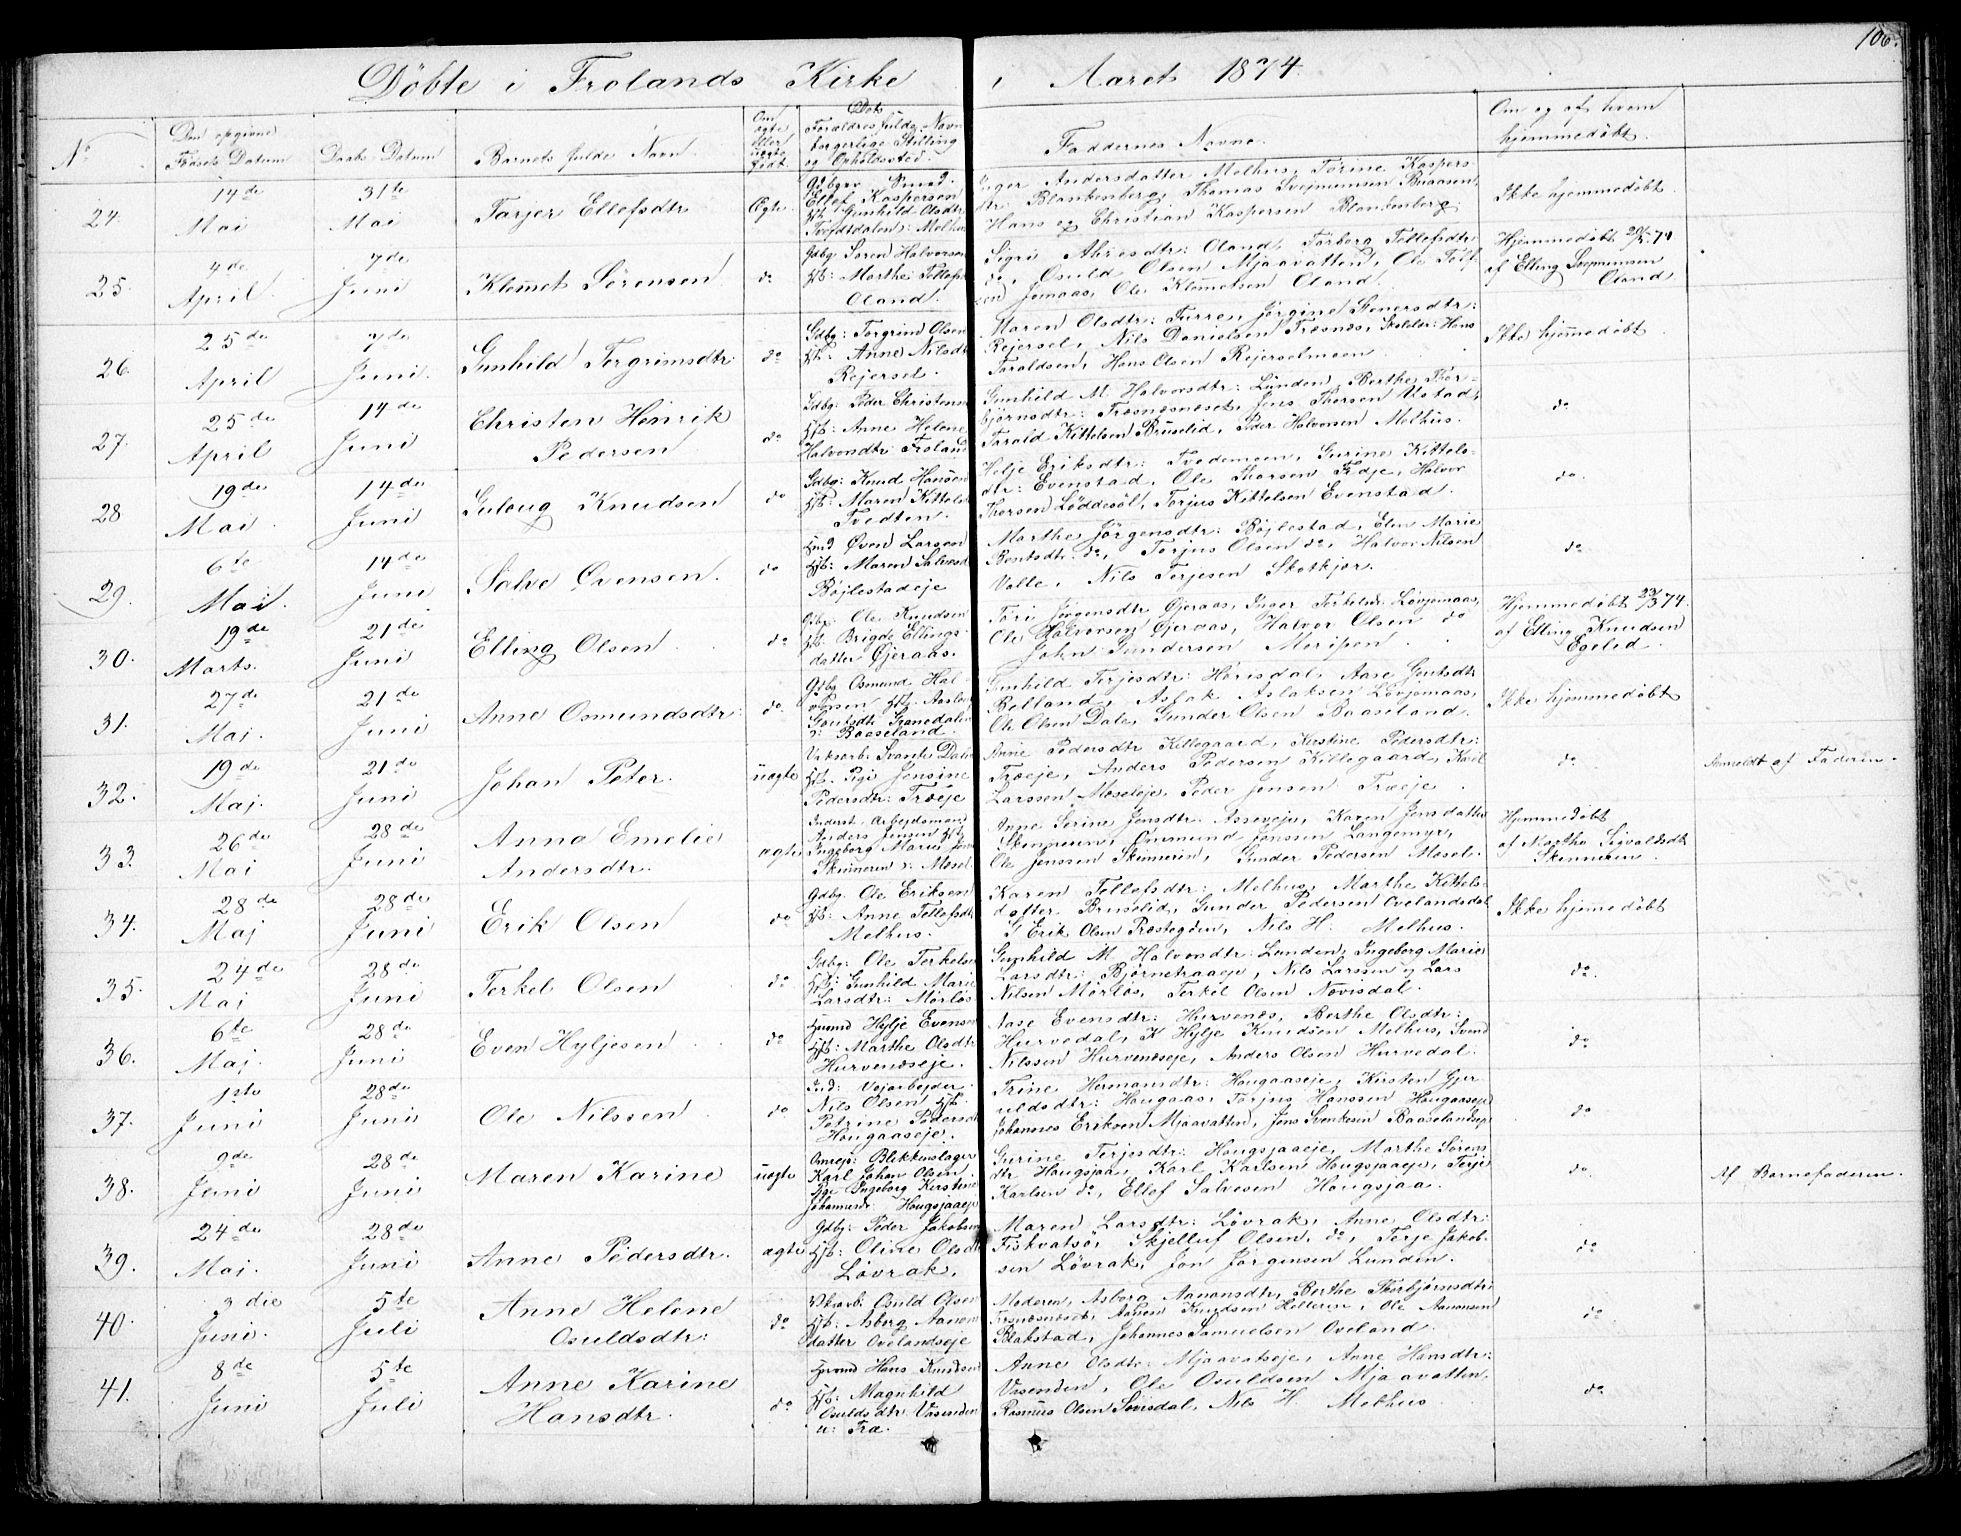 106.
Döbte i Frolands Kirke i Aaret 1874.
No
Den opgivne Fødsels Datum
Daabs Datum
Barnets fulde Navn.
Om ægte eller uægte født.
Det Forældres fuldg. Navn borgerlige Stilling og Opholdssted.
Faddernes Navne.
Om og af hvem hjemmedøbt.
24. 14de Mai 31te Mai Tarjer Ellefsdtr Ægte.
Ellef Kaspersen
Gunhild Olsdtr
Inger Andersdatter Melhus, Torine Kaspers-
dtr: Blankenberg, Thomas
Hans og Christian Kaspersen Blankenberg.
Ikke hjemmedøbt.
25. 4de April 7de Juni Klemet Sörensen do
Gdbg: Søren Halvorsen
Hst: Marthe Tellefsd
Oland.
Oland, Torborg Tellefsdtr
do, Osuld Olsen Mjaavatten, Ole Tellef-
sen Jomaas, Ole Klemetsen Oland.
Hjemmedøbt
af Elling
Oland
26. 25de April 7de Juni. Gunhild Torgrimsdtr: do
Gdbg: Torgrim Olsen
Hst: Anne Nilsdtr
Rejersel.
Maren Olsdtr:
Rejersel, Nils Danielsen Træsnæs, Skolelr: Hans
Taraldsen, Hans Olsen Rejerselmoen
Ikke hjemmedøbt.
27. 25de April 14de Juni Christen Henrik Pedersen do
Gdbg: Peder Christensen
Hst: Anne Helene
Halvorsdtr: Froland
Gunhild M. Halvorsdtr: Lunden, Berthe Thor-
björnsdtr: Træsnæsneset, Jens Thorsen Ustad,
Tarald Kittelsen Bruselid, Peder Halvorsen Melhus.
do
28 19de Mai. 14de Juni Guloug Knudsen do
Gdbg: Knud Hansen
Hst: Maren Kittels
Tvedten.
Helje Eriksdtr: Tvedemoen, Gurine Kittels-
dtr: Evenstad, Ole Thorsen Frdje, Halvor
Thorsen Löddesöl, Torjus Kittelsen Evenstad.
do.
29. 6te Mai. 14de Juni Salve Övensen. do
Hmd Øven Larsen
Hst: Maren Salvesd
Böjlestadeje
Marthe Jörgensdtr: Böjlestad, Elen Marie
Bentsdtr: do, Torjus Olsen do, Halvor Nilsen
Valle, Nils Terjesen Skotkjær.
do
30. 19de Marts. 21de Juni Elling Olsen do
Gdbg: Ole Knudsen
Hst. Brigde Ellings-
datter Øjeraas.
Tori Jörgensdtr Øjeraas, Inger Terkelsdr: Lövjomaas,
Ole Halvorsen Øjeraas, Halvor Olsen do
John Gundersen Meripen
Hjemmedøbt 23/3 74.
af Elling Knudsen
Egelid.
31. 27de Maj. 21de Juni Anne Osmundsdtr: do
Gdbg. Osmund Hal-
vorsen Hst. Aaslau
Goutsdtr
Baaseland.
Gunhild Terjesdtr: Hörisdal, Aase Goutsdtr
Belland, Aslak Aslaksen Lövjomaas,
Ole Olsen Dale, Gunder Olsen Baaseland.
Ikke hjemmedøbt
32. 19de Maj. 21de Juni Johan Peter. uægte
Pige Jensine
Pedersdtr: Træeje
Anne Pedersdtr Killegaard, Kirstine Pedersdtr:
Træeje, Anders Pedersen Killegaard, Karl
Larssen Moseleje, Peder Jensen Træeje.
do
Anmeldt af Faderen.
33. 26de Mai 28de Juni Anna Emelie Andersdtr. ægte
Inderst. Arbejdsmand
Anders Jensen Hst.
Ingeborg Marie
Skinneren v: Mosel
Anne Serine Jensdtr: Asseveje, Karen Jensdatter
Skinneren, Gunmund Jensen Langemyr,
Ole Jenssen Skinneren, Gunder Pedersen Mosel.
Hjemmedøbt
af Marthe Sigvaldsdtr
Skinneren.
34. 28de Maj 28de Juni Erik Olsen do
Gdbg: Ole Eriksen
Hst: Anne Tellefsdtr
Melhus.
Karen Tellefsdtr: Melhus, Marthe Kittels-
datter Bruselid, Gunder Pedersen Ovelandsdal
G Erik Olsen Præstegden, Nils H. Melhus.
Ikke hjemmedøbt
35. 24de Maj 28de Juni Terkel Olsen do
Gdbg: Ole Terkelsen
Hst: Gunhild Marie
Larsdtr: Mörlös
Gunhild M. Halvorsdtr: Lunden, Ingeborg Marie
Larsdtr: Björnetraaeje, Nils Larssen og Lars
Nilsen Mörlös, Terkel Olsen Novisdal.
do.
36. 6te Maj. 28de Juni Even Hyljesen do
Husmd Hylje Evensen
Hst: Marthe Olsdtr
Hurvenæseje.
Aase Evensdtr: Hurvenæs, Berthe Olsdtr:
Hurvedal, K Hylje Knudsen Melhus, Svend
Nilssen Hurvenæseje, Anders Olsen Hurvedal.
do
37. 1ste Juni 28de Juni Ole Nilssen do
Ind: Vejarbejder
Nils Olsen Hst:
Petrine Pedersdtr
Hougaaseje.
Trine Hermansdtr: Hougaaseje, Kirsten Gjer-
uldsdtr: Hougaas, Torjus Hanssen Hougaaseje
Johannes Eriksen Mjaavatten, Jens Svenkesen Baaselandseje
do
38. 9de Juni 28de Juni Maren Karine uægte
Omrejs: Blikkenslager
Karl Johan Olsen.
Pige Ingeborg Kirstine
Johansdr: Hougsjaaeje
Gurine Terjesdtr: Hougsjaaeje, Marthe Sörens-
dtr Hougsjaa, Karl Karlsen Hougsjaaeje, Terje
Karlsen do, Ellef Salvesen Hougsjaa.
do.
Af Barnefaderen.
39. 24de Maj. 28de Juni Anne Pedersdtr. ægte
Gdbg: Peder Jakobsen
Hst: Oline Olsdtr
Lövrak.
Maren Larsdtr: Lövrak, Anne Olsdtr:
Fiskvatsö, Skjelluf Olsen, do, Terje Jakob-
sen Lövrak, Jon Jørgensen Lunden.
do
40. 3die Juni. 5te Juli Anne Helene Osuldsdtr: do
Osuld Olsen
Hst: Asberg Aanon-
datter Ovelandseje
Moderen, Asborg Aanonsdtr, Berthe Thorbjörnsdtr:
Træsnæsneset, Aanen Knudsen Helleren, Ole Aanonsen
Blakstad, Johannes Samuelsen Oveland.
do
41. 8de Juni 5te Juli Anne Karine Hansdtr. do
Husmd Hans Knudsen
Hst: Magnhild
Osuldsdtr. Vasenden
u: Træ.
Anne Olsdtr: Mjaavatseje, Anne Hansdtr:
Vasenden, Ole Osuldsen Mjaavatten,
Rasmus Olsen Songsdal, Nils H. Melhus
do